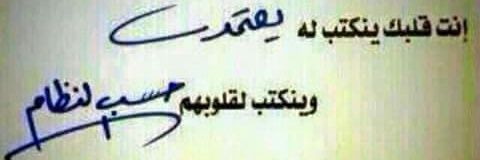 إنت قلبك ينكتب له يعتمد
وينكتب لقلوبهم حسب لنظام